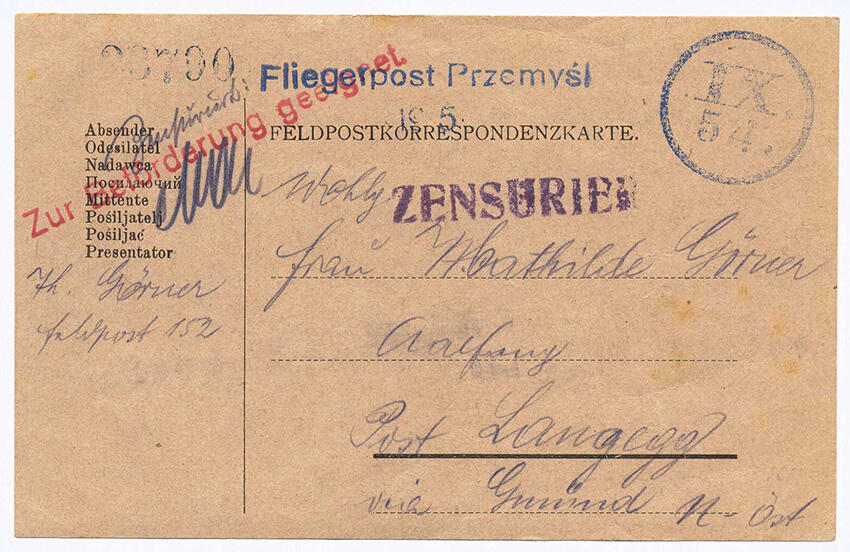 23790
Fliegerpost Przemyśl
IX.
54.
Zensuriert:
Zur Beförderung geeignet.
FELDPOSTKORRESPONDENZKARTE.
Absender
Odesílatel
Nadawca
Посилаючий
Mittente
Pošiljatelj
Pošiljač
Presentator
ZENSURIER
Wohlg.
Frau Mathilde Görner
Aalfang
Post Langegg
via Gmünd N-Öst
Th. Görner
Feldpost 152